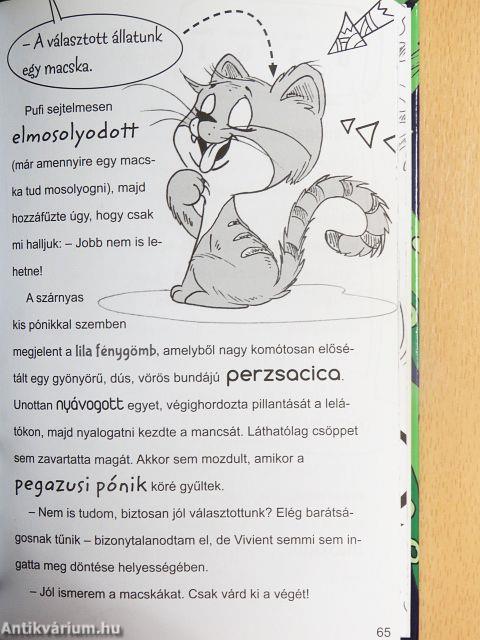 – A választott állatunk
egy macska.
Pufi sejtelmesen
elmosolyodott
(már amennyire egy macs-
ka tud mosolyogni), majd
hozzáfűzte úgy, hogy csak
mi halljuk: – Jobb nem is le-
hetne!
A szárnyas
kis pónikkal szemben
megjelent a lila fénygömb, amelyből nagy komótosan elősé-
tált egy gyönyörű, dús, vörös bundájú perzsacica.
Unottan nyávogott egyet, végighordozta pillantását a lelá-
tókon, majd nyalogatni kezdte a mancsát. Láthatólag csöppet
sem zavartatta magát. Akkor sem mozdult, amikor a
pegazusi pónik köré gyűltek.
– Nem is tudom, biztosan jól választottunk? Elég barátsá-
gosnak tűnik – bizonytalanodtam el, de Vivient semmi sem in-
gatta meg döntése helyességében.
– Jól ismerem a macskákat. Csak várd ki a végét!
65
Antikvárium.hu